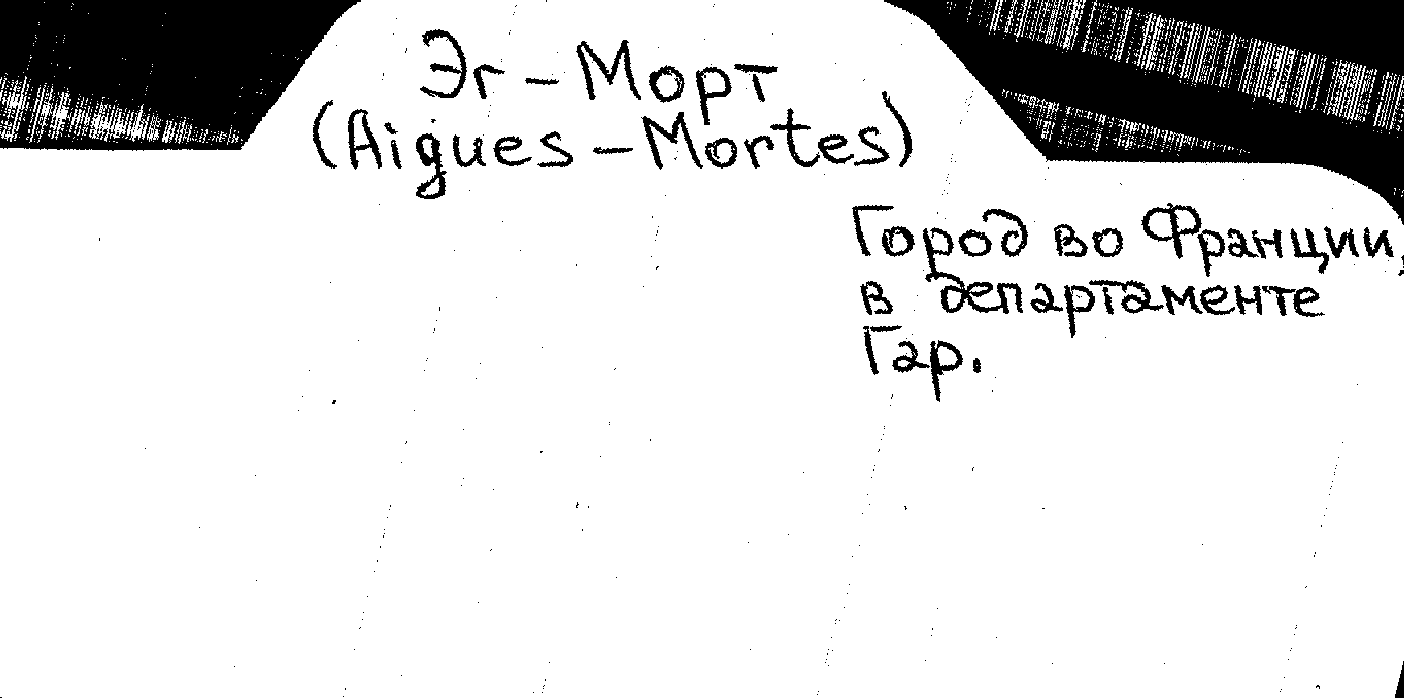 Эг-Морт
(Aigues-Mortes)
Город во Франции,
в департаменте
Гар.